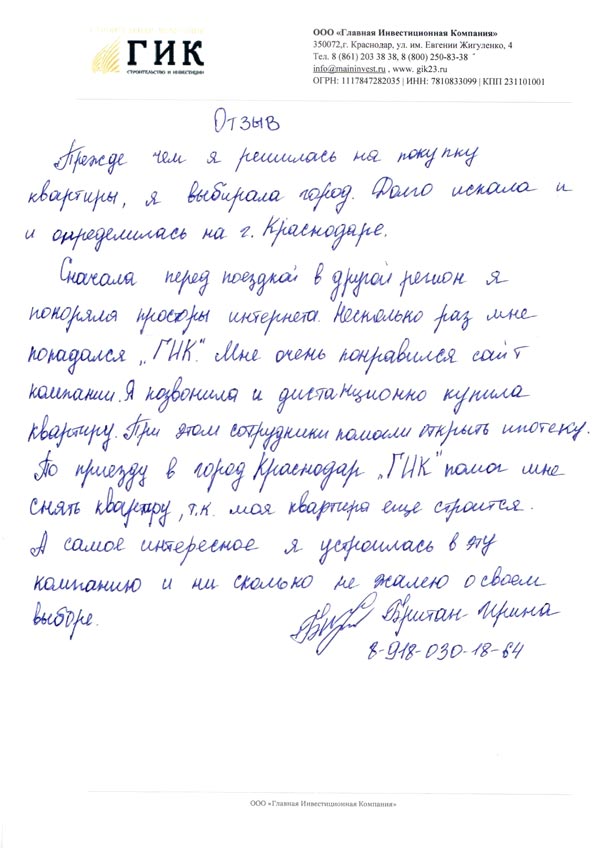 ГИК
СТРОИТЕЛЬСТВО И ИНВЕСТИЦИИ
ООО «Главная Инвестиционная Компания»
350072,г. Краснодар, ул. им. Евгении Жигуленко, 4
Тел. 8 (861) 203 38 38, 8 (800) 250-83-38
info@maininvest.ru , www. gik23.ru
ОГРН: 1117847282035 | ИНН: 7810833099 | КПП 231101001
Отзыв
Прежде чем я решилась на покупку
квартиры, я выбирала город. Долго искала и
и определилась на г. Краснодаре.
Сначала перед поездкой в другой регион я
покоряла просторы интернета. Несколько раз мне
попадался „ГИК". Мне очень понравился сайт
компании. Я позвонила и дистанционно купила
квартиру. При этом сотрудники помогли открыть ипотеку.
По приезду в город Краснодар „ГИК" помог мне
снять квартиру, т.к. моя квартира еще строится.
А самое интересное я устроилась в эту
компанию и ни сколько не жалею о своем
выборе.
Британ Ирина
8-918-030-18-64
ООО «Главная Инвестиционная Компания»